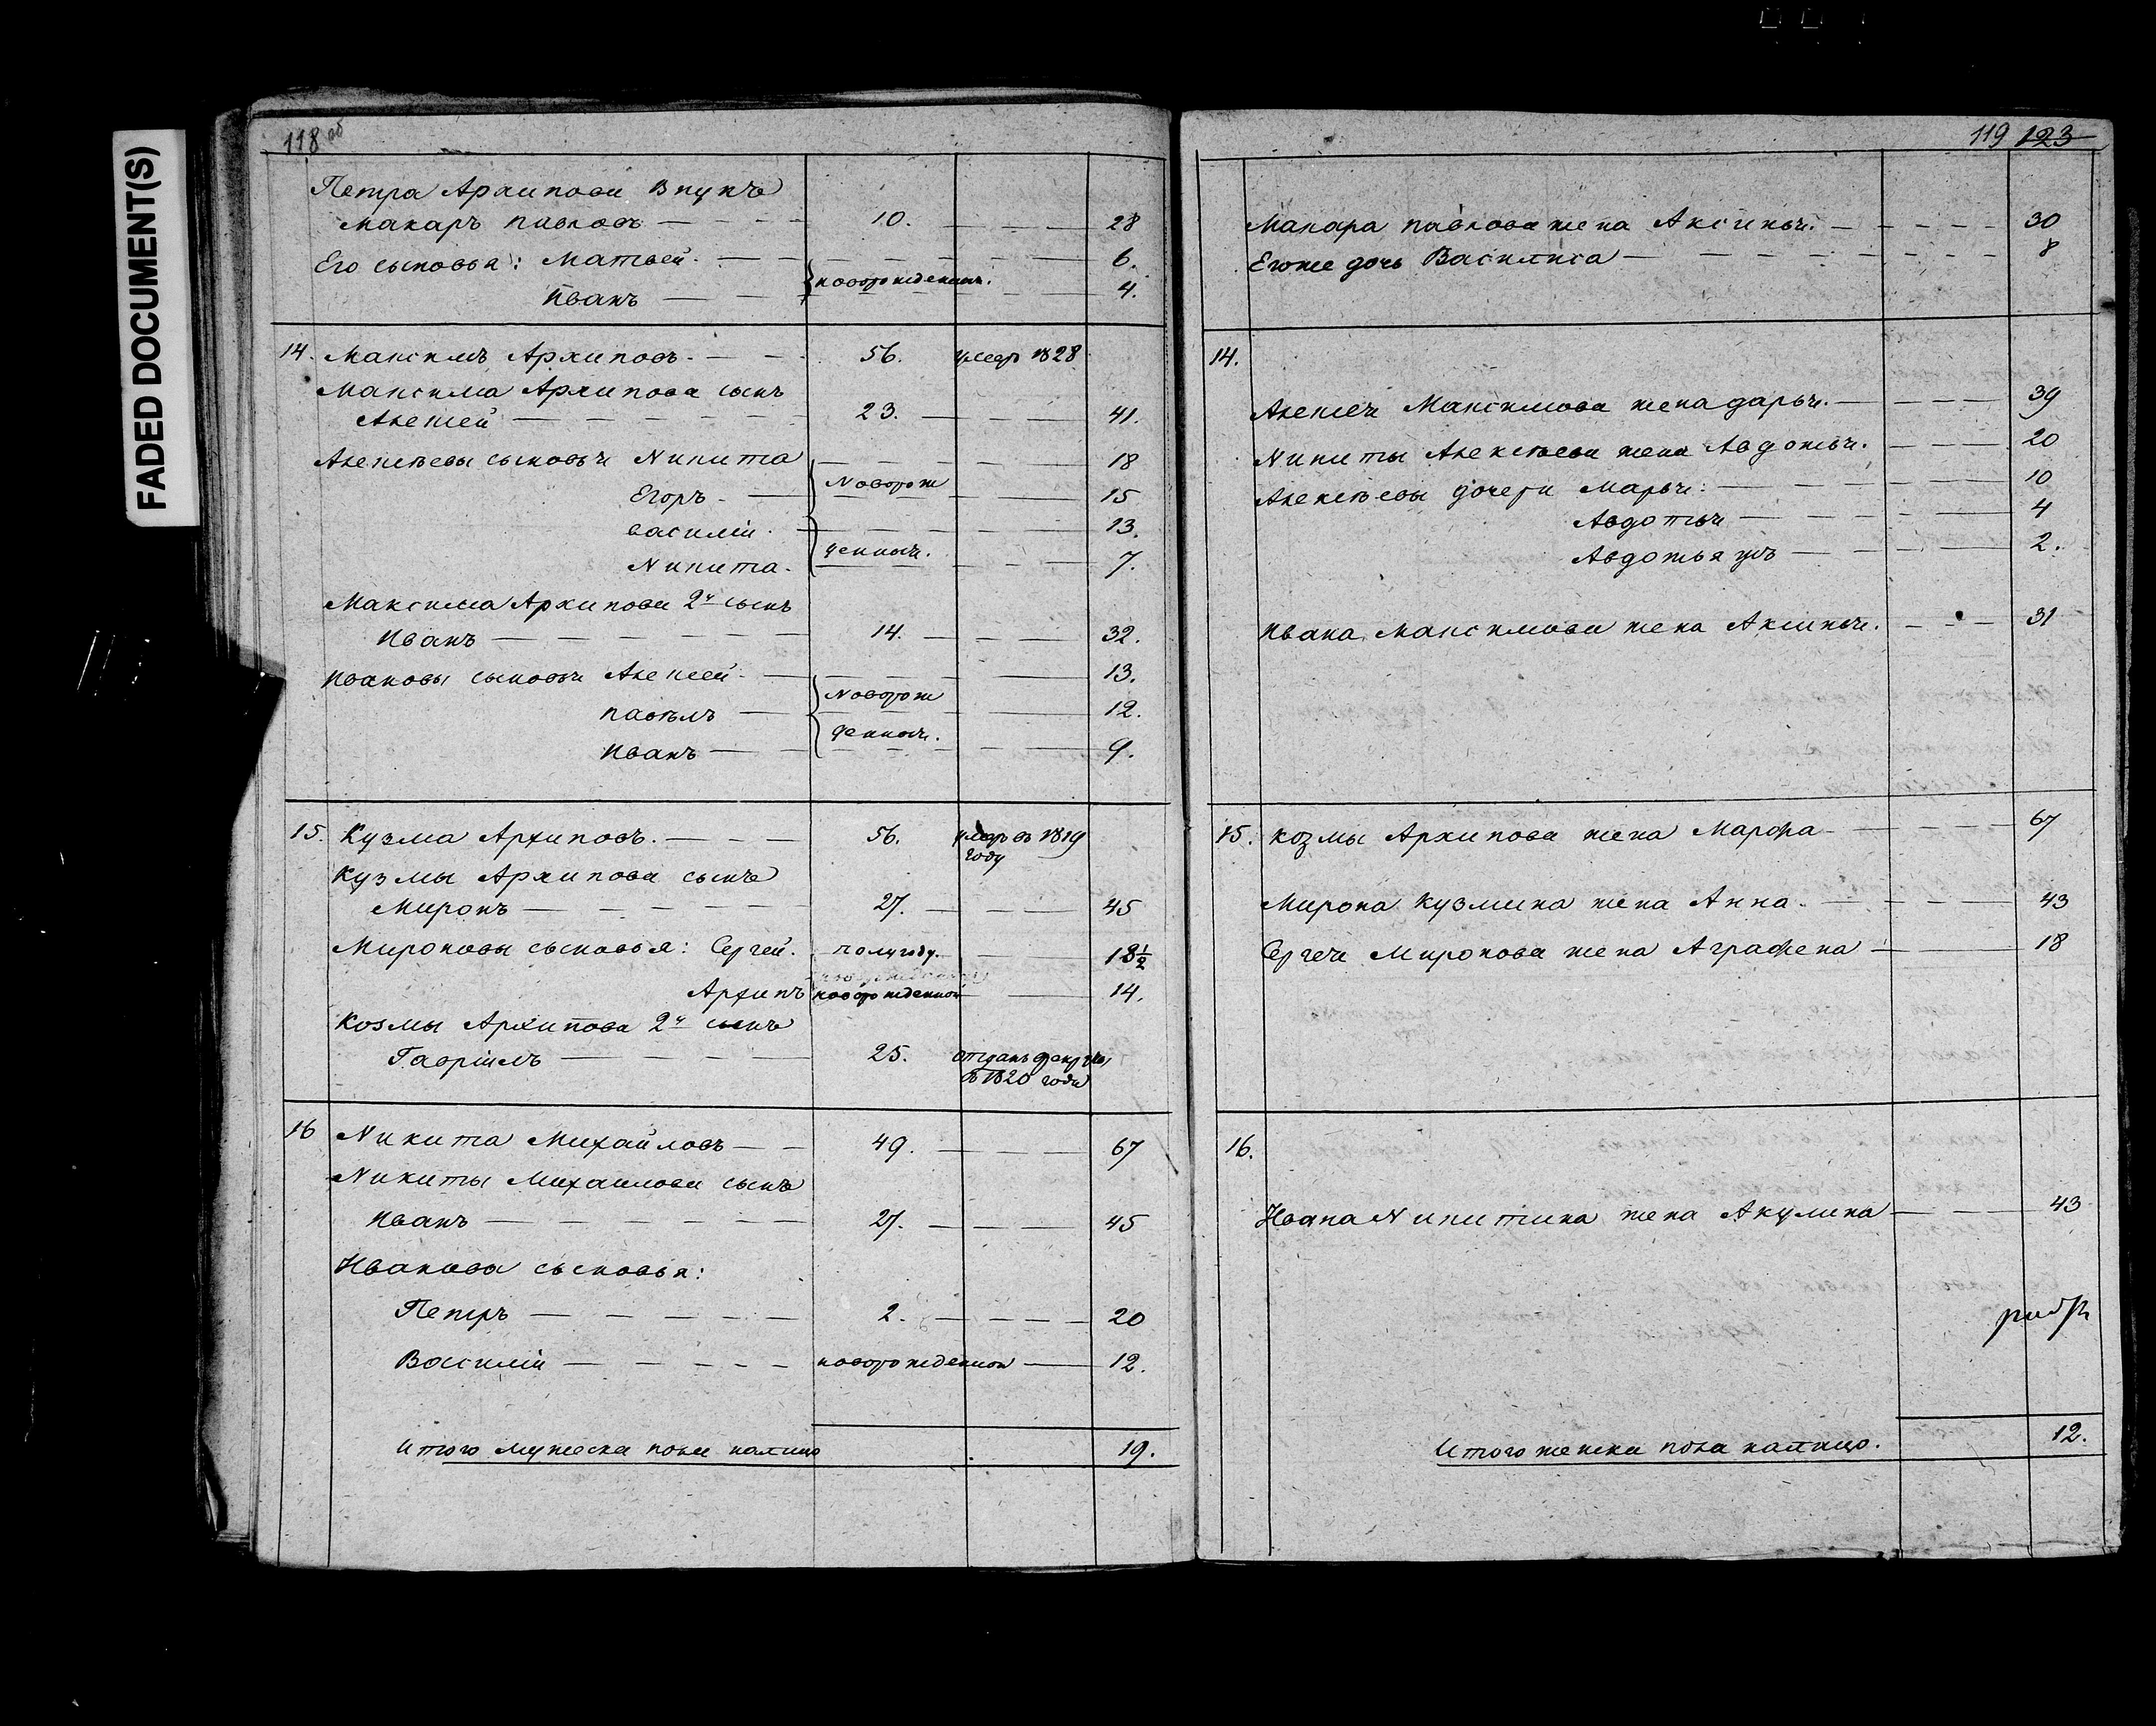 FADED DOCUMENT(S)
118 об
Петра Архипова внукъ
Макаръ Павловъ 10. 28
Его сыновья: Матвей 6.
новорожденныя.
Иванъ 4.
14. Максимъ Архиповъ 56. умеръ 1828
Максима Архипова сынъ
Алексей 23. 41.
Алексѣевы сыновья Никита 18
Новорож
Егоръ 15
Василій 13.
денныя.
Никита 7.
Максима Архипова 2й сынъ
Иванъ 14. 32.
Ивановы сыновья Алексей 13.
Новорож
Павѣлъ 12.
денныя.
Иванъ 9.
15. Кузма Архиповъ. 56. умеръ въ 1819
году
Кузмы Архипова сынъ
Миронъ 27. 45
Мироновы сыновья: Сергей. полугоду. 18½
Архипъ новорожденной 14.
Козмы Архипова 2й сынъ
Гаврiилъ 25. отданъ в рекруты
в 1820 году
16 Никита Михайловъ 49. 67
Никиты Михаилова сынъ
Иванъ 27. 45
Иванова сыновья:
Петръ 2. 20
Василій новорожденной 12.
Итого мужеска пола налицо 19.
119 123
Макара Павлова жена Аксинья. 30
Егоже дочь Василиса 8
14.
Алексея Максимова жена Дарья. 39
Никиты Алексѣева жена Авдотья. 20
Алексѣевы дочери Марья: 10
Авдотья 4
Авдотья ж 2.
Ивана Максимова жена Аксинья. 31
15. Козмы Архипова жена Марфа 67
Мирона Кузмина жена Анна. 43
Сергея Миронова жена Аграфена 18
16.
Ивана Никитина жена Акулина 43
Итого женска пола налицо. 12.